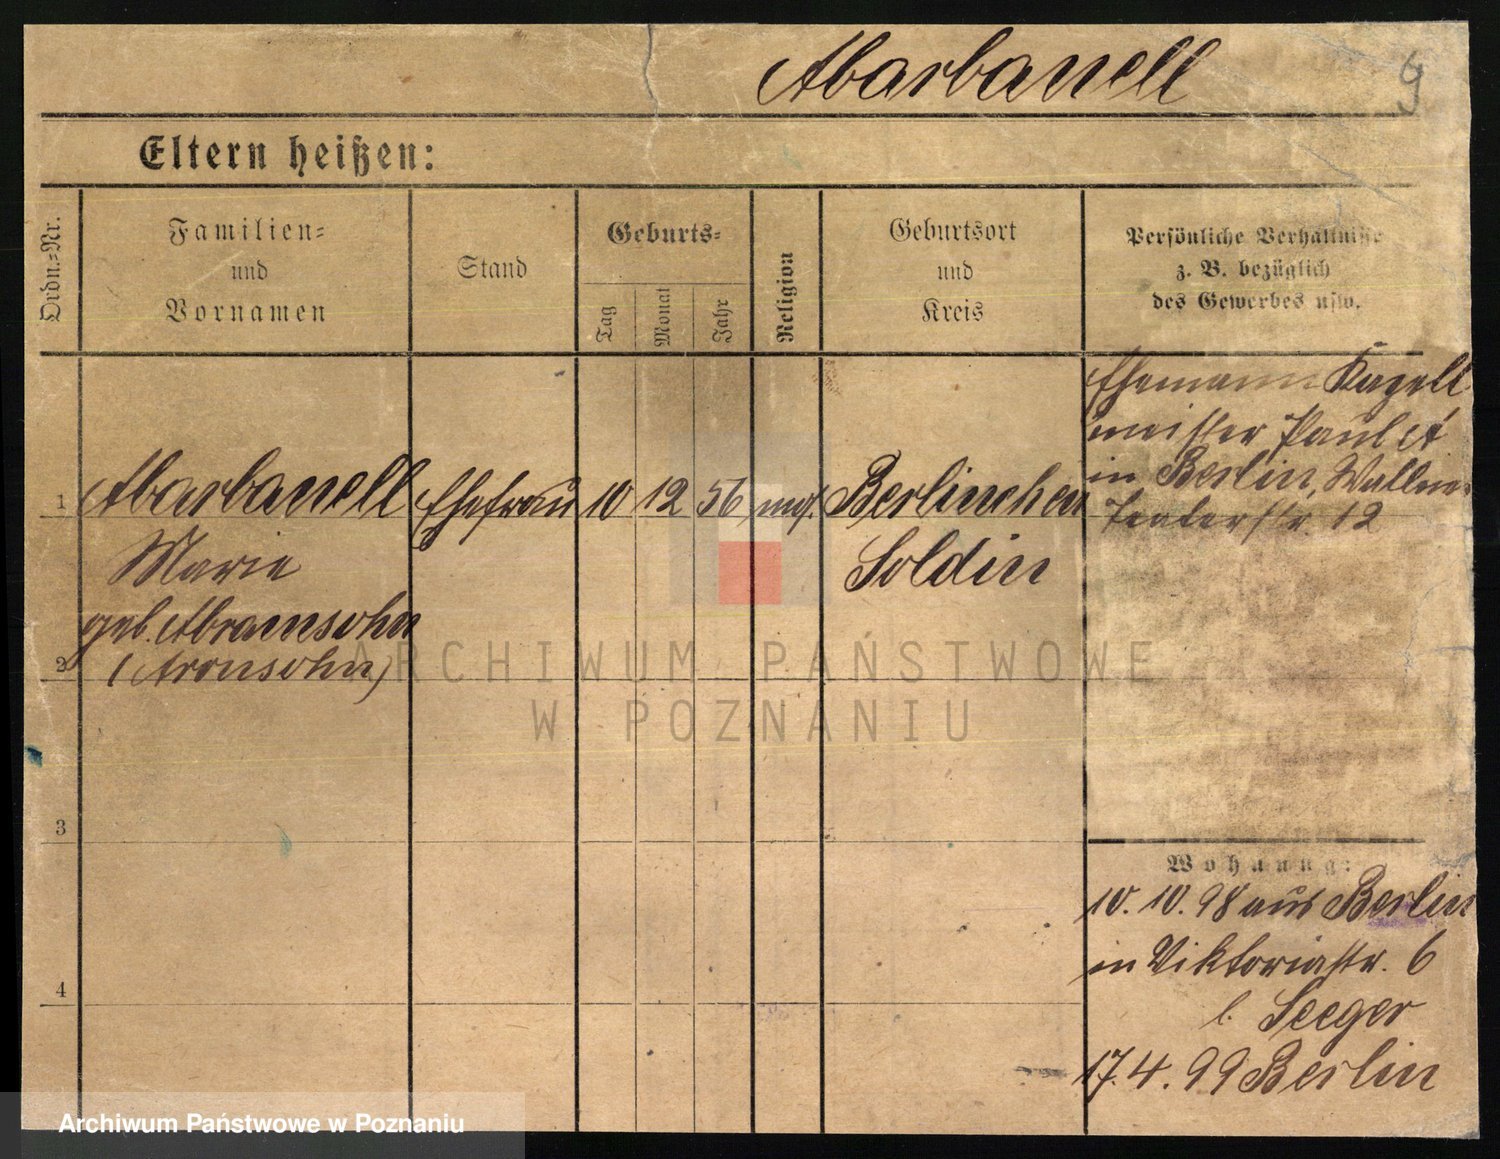 Abarbanell
9
Eltern heißen:
Ordn.-Nr.
Familien-
und
Vornamen
Stand
Geburts-
Tag
Monat
Jahr
Religion
Geburtsort
und
Kreis
Persönliche Verhältnisse
z. B. bezüglich
des Gewerbes usw.
1
Abarbanell
Marie
geb. Abramsohn
(Aronsohn)
Ehefrau
10
12
56
mos.
Berlinchen
Soldin
Ehemann Kapell
meister Paul A
in Berlin, Wallner
Teaterstr. 12
2
3
4
Wohnung:
10. 10. 98 aus Berlin
in Viktoriastr. 6
b. Seeger
17. 4. 99 Berlin
ARCHIWUM PAŃSTWOWE
W POZNANIU
Archiwum Państwowe w Poznaniu